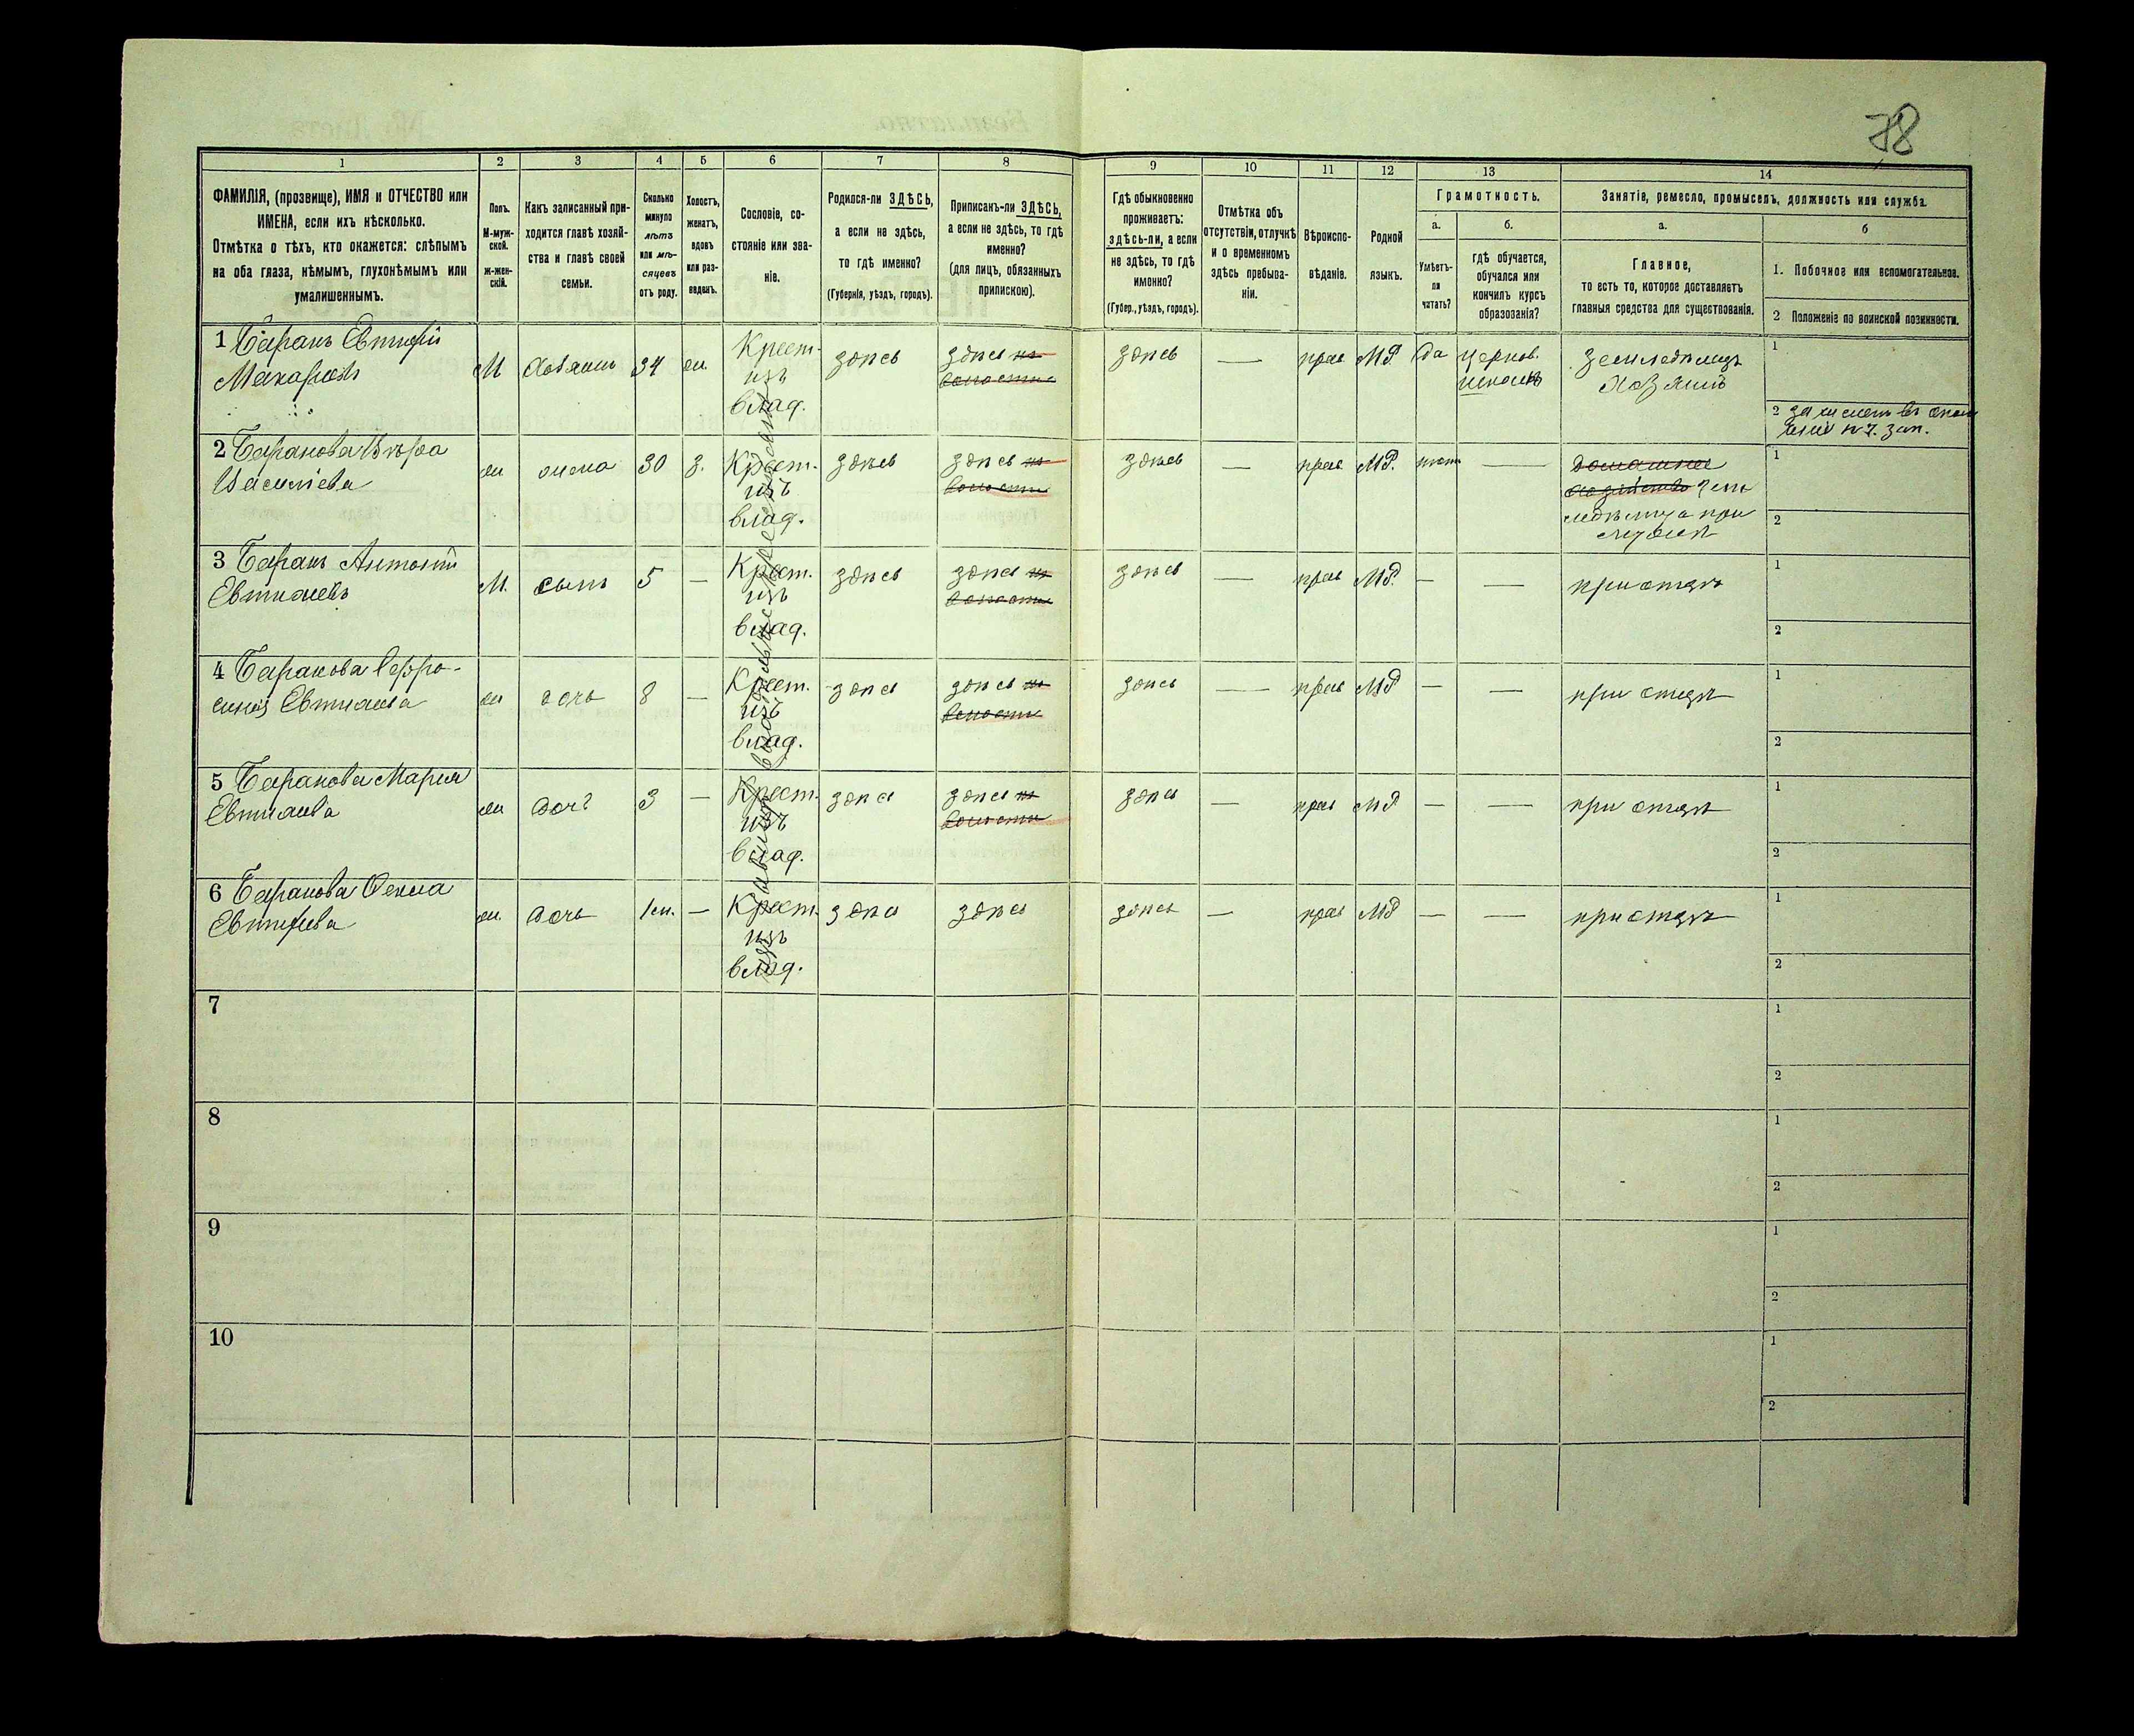 78
1
2
3
4
5
6
7
8
9
10
11
12
13
14
ФАМИЛІЯ, (прозвище), ИМЯ и ОТЧЕСТВО или
ИМЕНА, если ихъ нѣсколько.
Отмѣтка о тѣхъ, кто окажется: слѣпымъ
на оба глаза, нѣмымъ, глухонѣмымъ или
умалишеннымъ.
Полъ.
М-муж-
ской.
ж-жен-
скій.
Какъ записанный при-
ходится главѣ хозяй-
ства и главѣ своей
семьи.
Сколько
минуло
лѣтъ
или мѣ-
сяцевъ
отъ роду.
Холостъ,
женатъ,
вдовъ
или раз-
веденъ.
Сословіе, со-
стояніе или зва-
ніе.
Родился-ли ЗДѢСЬ,
а если не здѣсь,
то гдѣ именно?
(Губернія, уѣздъ, городъ).
Приписанъ-ли ЗДѢСЬ,
а если не здѣсь, то гдѣ
именно?
(для лицъ, обязанныхъ
припискою).
Гдѣ обыкновенно
проживаетъ:
здѣсь-ли, а если
не здѣсь, то гдѣ
именно?
(Губер., уѣздъ, городъ).
Отмѣтка объ
отсутствіи, отлучкѣ
и о временномъ
здѣсь пребыва-
ніи.
Вѣроиспо-
вѣданіе.
Родной
языкъ.
Грамотность.
а.
Умѣетъ-
ли
читать?
б.
гдѣ обучается,
обучался или
кончилъ курсъ
образованія?
Занятіе, ремесло, промыселъ, должность или служба.
а.
Главное,
то есть то, которое доставляетъ
главныя средства для существованія.
б
1. Побочное или вспомогательное.
2 Положеніе по воинской повинности.
1 Баранъ Евтихій
Макаровъ
М
хозяинъ
34
ж.
Крест.
изъ
влад.
здѣсь
здѣсь
волости
здѣсь
—
прав
МР.
да
церков.
школѣ
земледѣлецъ
хозяинъ
1
2
2 Баранова Вѣра
Василіева
ж
жена
30
з.
Крест.
изъ
влад.
здѣсь
здѣсь
волости
здѣсь
—
прав
МР.
нетъ
—
домашнее
хозяйство
1
2
3 Баранъ Антоній
Евтихіевъ
М.
сынъ
5
—
Крест.
изъ
влад.
здѣсь
здѣсь
волости
здѣсь
—
прав
МР.
—
—
при отцѣ
1
2
4 Баранова Ефро-
синія Евтихіева
ж
дочь
8
—
Крест.
изъ
влад.
здѣсь
здѣсь
волости
здѣсь
—
прав
МР
—
—
при отцѣ
1
2
5 Баранова Марія
Евтихіева
ж
дочь
3
—
Крест.
изъ
влад.
здѣсь
здѣсь
волости
здѣсь
—
прав
МР
—
—
при отцѣ
1
2
6 Баранова
Евтихіева
ж.
дочь
1 м.
—
Крест.
изъ
влад.
здѣсь
здѣсь
здѣсь
—
прав
МР
—
—
при отцѣ
1
2
7
1
2
8
1
2
9
1
2
10
1
2